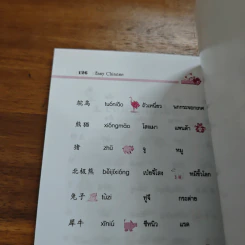 198 Easy Chinese
鸵鸟 tuóniǎo ถัวเหนี่ยว นกกระจอกเทศ
熊猫 xióngmāo โสงมาว แพนด้า
猪 zhū จู หมู
北极熊 běijíxióng เป่ยจี๋โสง หมีขั้วโลก
兔子 tùzi ทู่จึ กระต่าย
犀牛 xīniú ซีหนิว แรด